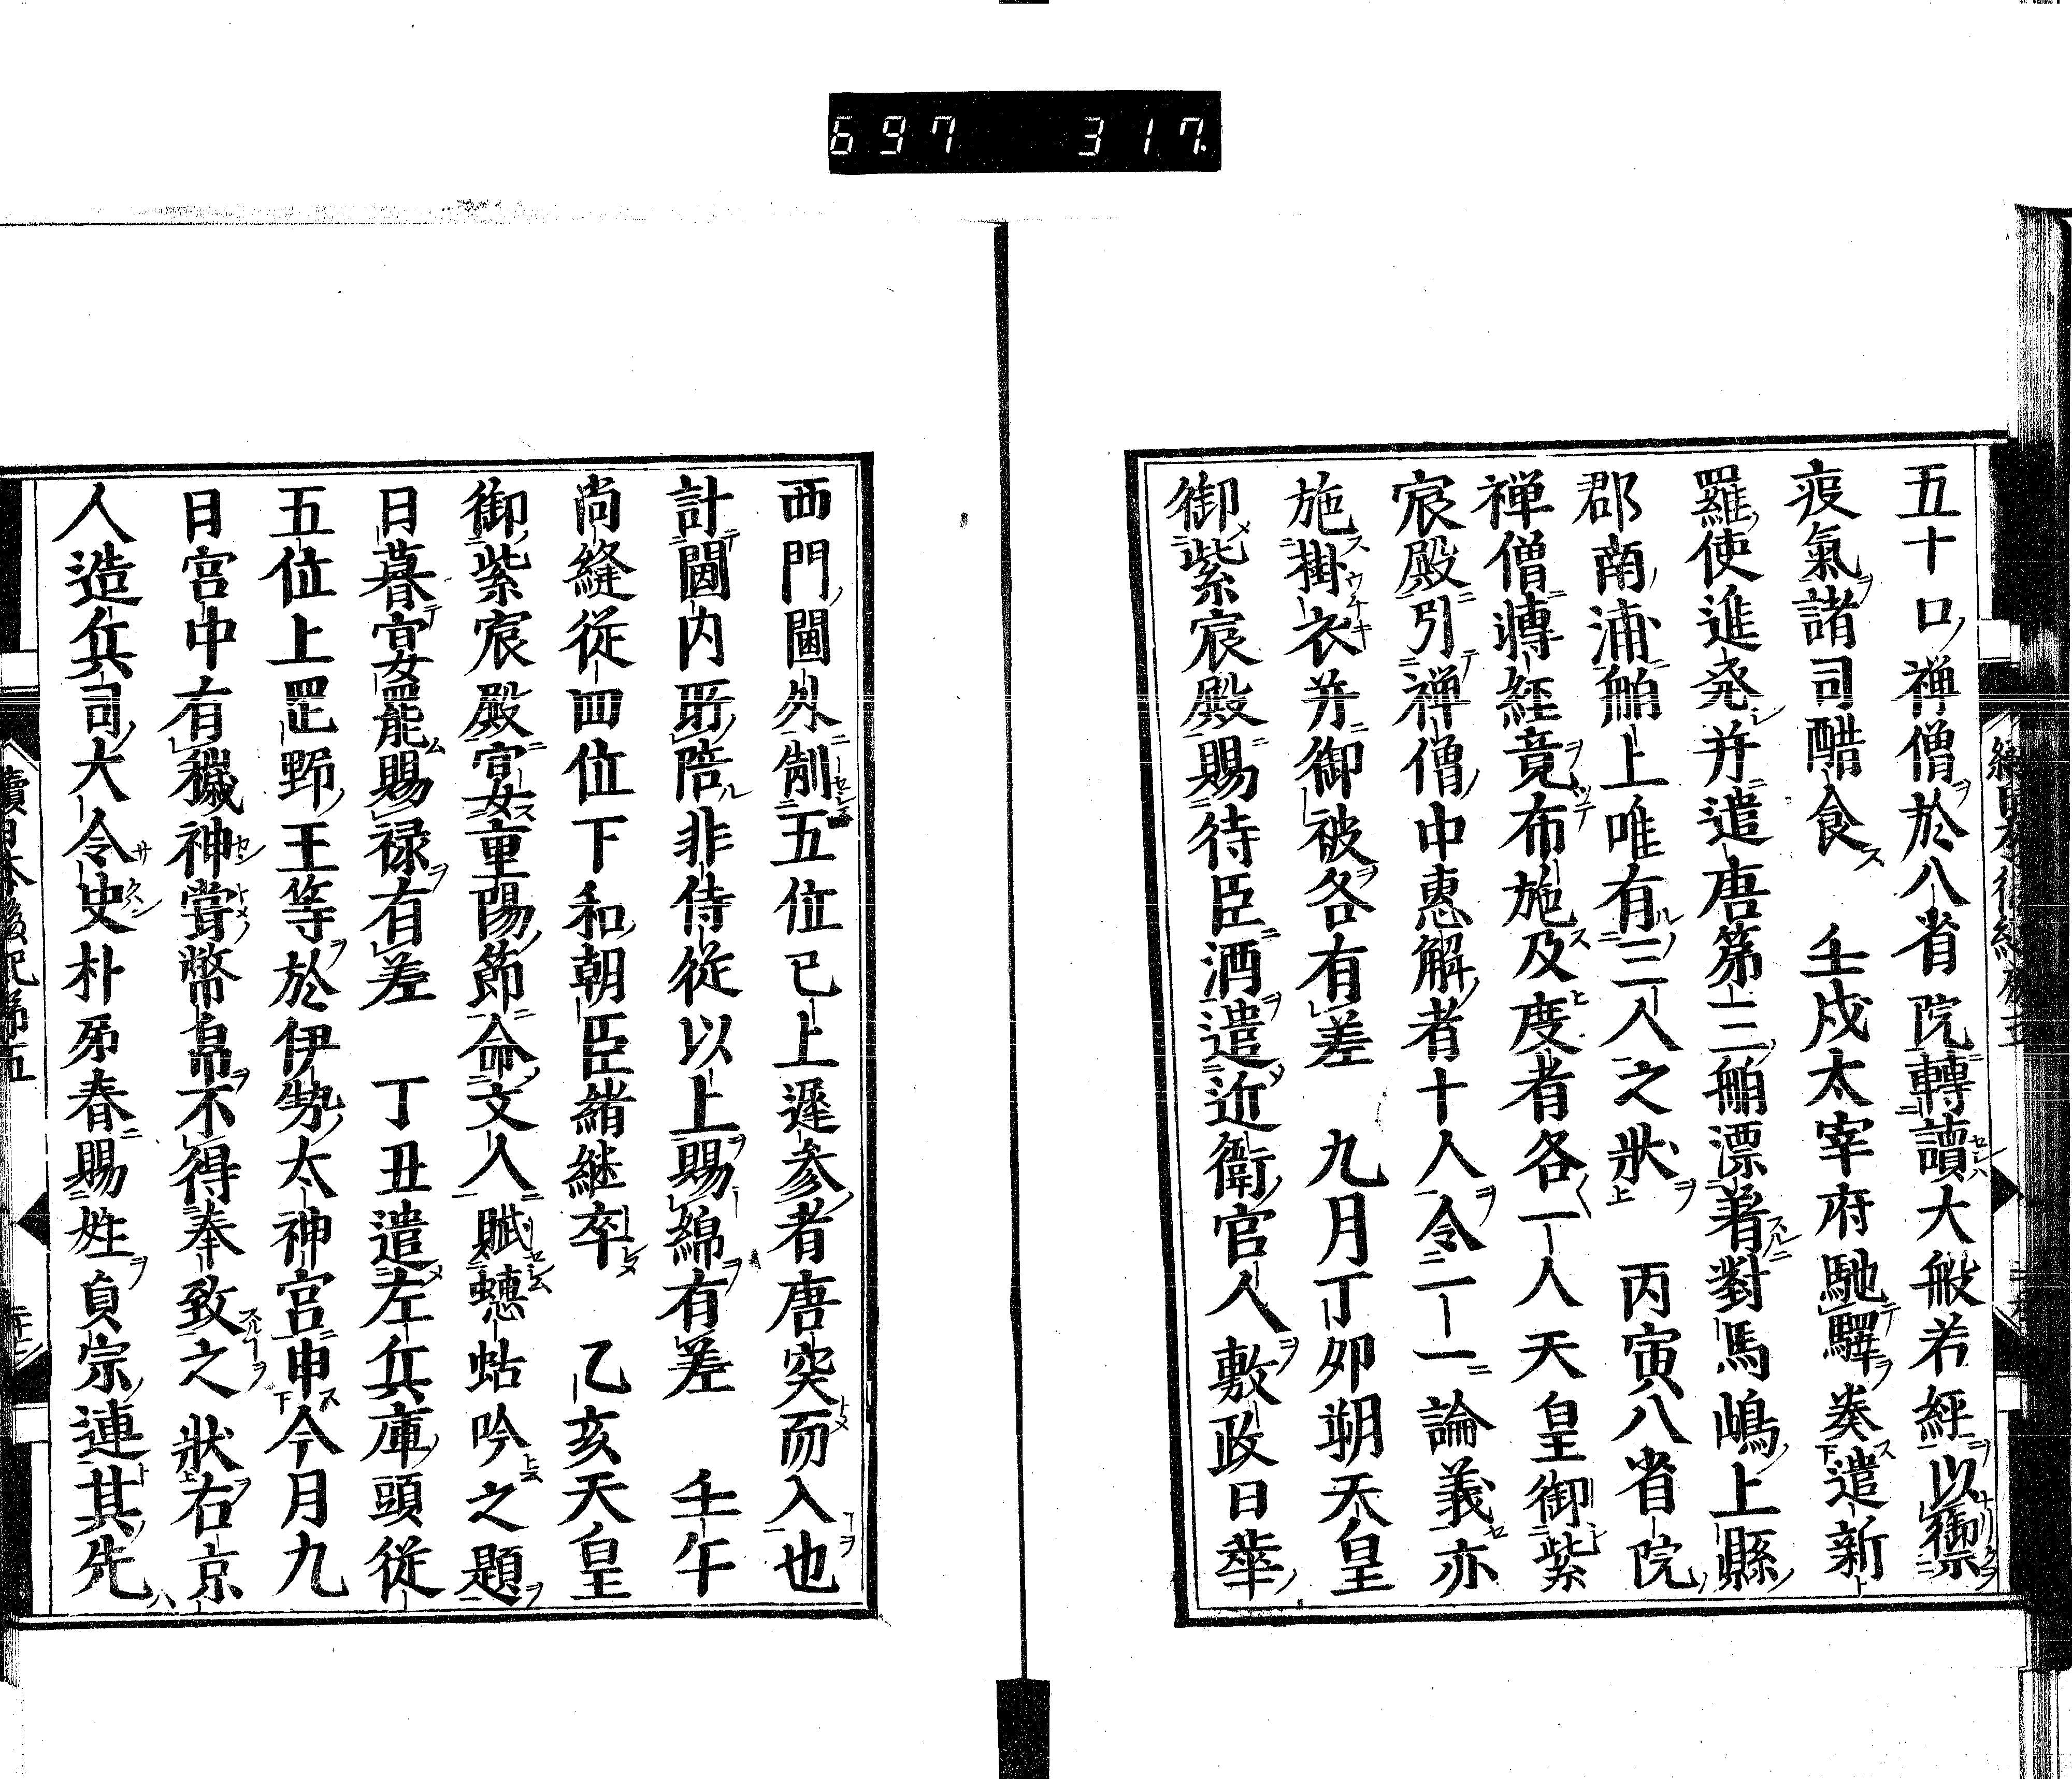 697 317.
五十口禅僧於八省院轉讀大般若經以禦
疫氣諸司醋食 壬戌太宰府馳驛奏遣新
羅使進発并遣唐第三舶漂著對馬嶋上縣
郡南浦舶上唯有三人之狀 丙寅八省院
禅僧轉經竟布施及度者各一人天皇御紫
宸殿引禅僧中恵解者十人令一一論義亦
施掛衣并御被各有差 九月丁夘朔天皇
御紫宸殿賜侍臣酒遣近衛官人敷政日華
西門閫外制五位已上遅参者唐突而入也
計閫内所陪非侍從以上賜綿有差 壬午
尚縫從四位下和朝臣緒継卒 乙亥天皇
御紫宸殿宴重陽節命文人賦蟪蛄吟之題
日暮宴罷賜禄有差 丁丑遣左兵庫頭從
五位上罡野王等於伊勢太神宮申今月九
日宮中有穢神甞幣帛不得奉致之狀右京
人造兵司大令史朴弟春賜姓貞宗連其先
續日本後紀第五